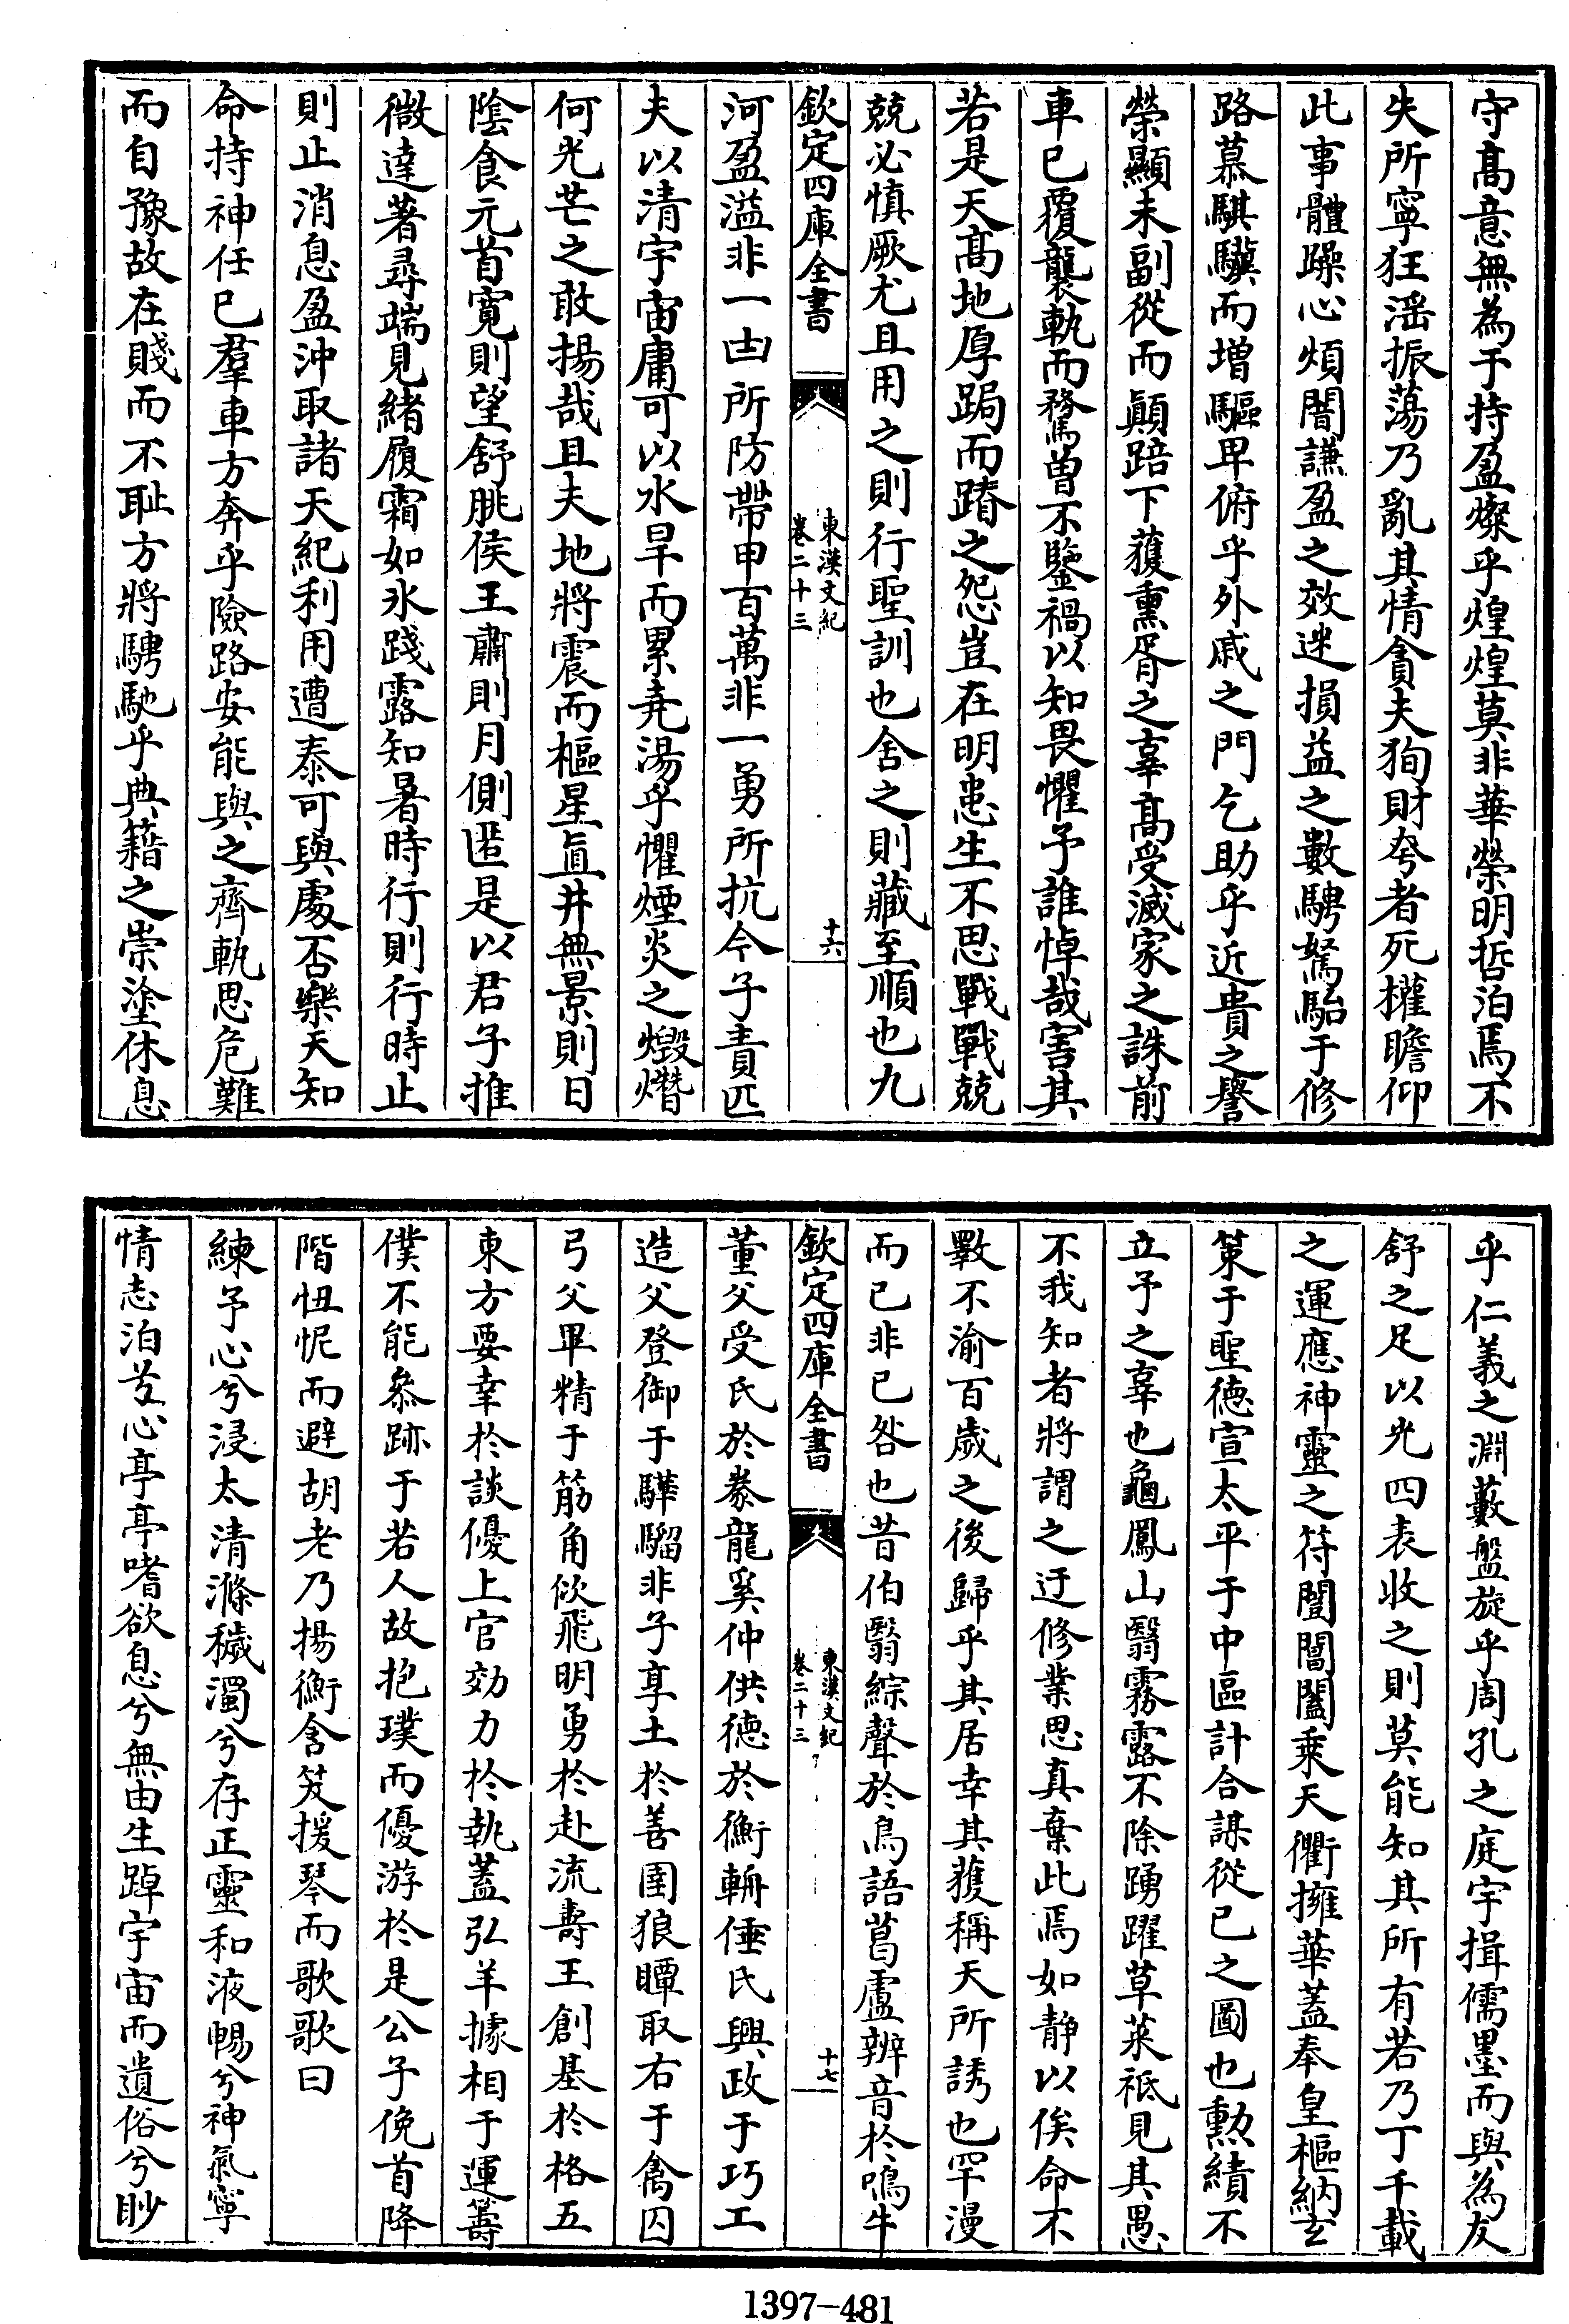 守髙意無為于持盈燦乎煌煌莫非華榮明哲泊焉不
失所寧狂滛振蕩乃亂其情貪夫狥財夸者死權瞻仰
此事體躁心煩闇謙盈之效迷損益之數騁駑駘于修
路慕騏驥而增驅卑俯乎外戚之門乞助乎近貴之譽
榮顯未副從而顚踣下獲熏胥之辜髙受滅家之誅前
車已覆襲軌而騖曽不鑒禍以知畏懼予誰悼哉害其
若是天髙地厚跼而蹐之怨豈在明患生不思戰戰兢
兢必慎厥尤且用之則行聖訓也舍之則藏至順也九
欽定四庫全書
東漢文紀
卷二十三
十六
河盈溢非一甴所防帶甲百萬非一勇所抗今子責匹
夫以清宇宙庸可以水旱而累堯湯乎懼煙炎之燬熸
何光芒之敢揚哉且夫地將震而樞星直井無景則日
隂食元首寛則望舒朓侯王肅則月側匿是以君子推
微達著尋端見緒履霜如氷踐露知暑時行則行時止
則止消息盈沖取諸天紀利用遭泰可與處否樂天知
命持神任己羣車方奔乎險路安能與之齊軌思危難
而自豫故在賤而不耻方將騁馳乎典籍之崇塗休息
乎仁義之淵藪盤旋乎周孔之庭宇揖儒墨而與為友
舒之足以光四表收之則莫能知其所有若乃丁千載
之運應神靈之符闓閶闔乘天衢擁華蓋奉皇樞納玄
策于聖徳宣太平于中區計合謀從已之圖也勲績不
立予之辜也龜鳳山翳霧露不除踴躍草萊祗見其愚
不我知者將謂之迂修業思真棄此焉如静以俟命不
斁不渝百歲之後歸乎其居幸其獲稱天所誘也罕漫
而已非已咎也昔伯翳綜聲於鳥語葛盧辨音於鳴牛
欽定四庫全書
東漢文紀
卷二十三
十七
董父受氏於豢龍奚仲供徳於衡輈倕氏興政于巧工
造父登御于驊騮非子享土於善圉狼瞫取右于禽囚
弓父畢精于筋角佽飛明勇於赴流夀王創基於格五
東方要幸於談優上官効力於執蓋弘羊據相于運籌
僕不能參跡于若人故抱璞而優游於是公子俛首降
階忸怩而避胡老乃揚衡含笑援琴而歌歌曰
練予心兮浸太清滌穢濁兮存正靈和液暢兮神氣寧
情志泊兮心亭亭嗜欲息兮無由生踔宇宙而遺俗兮眇
1397—481